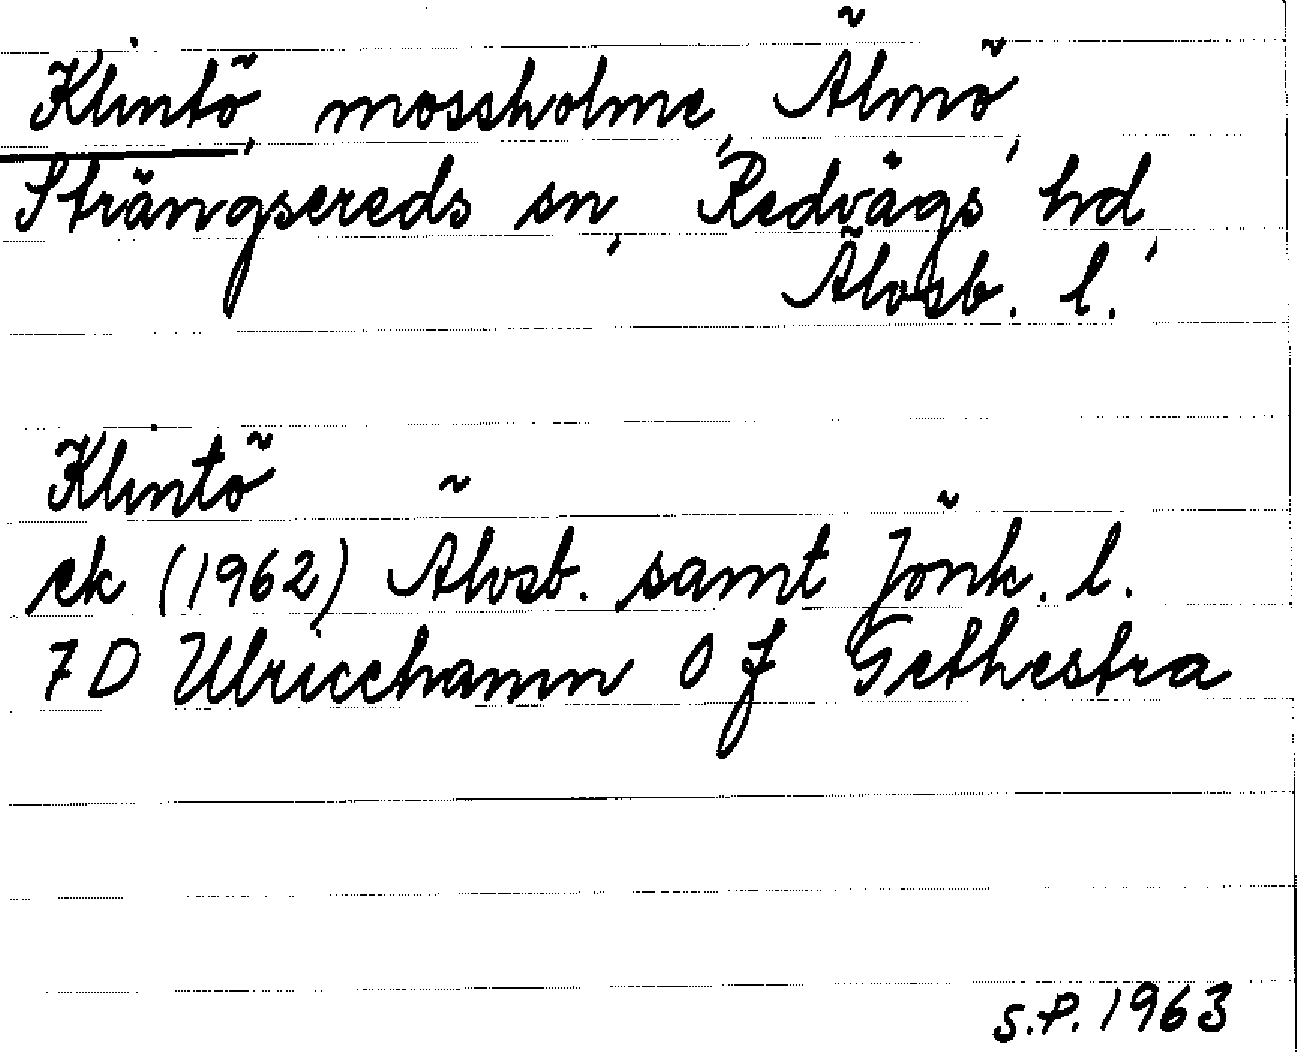 Klintö, mossholme, Älmö,
Strängsereds sn, Redvägs hd,
Älvsb. l.
Klintö
ek (1962) Älvsb. samt Jönk. l.
7 D Ulricehamn 0 f Gethestra
S.P. 1963